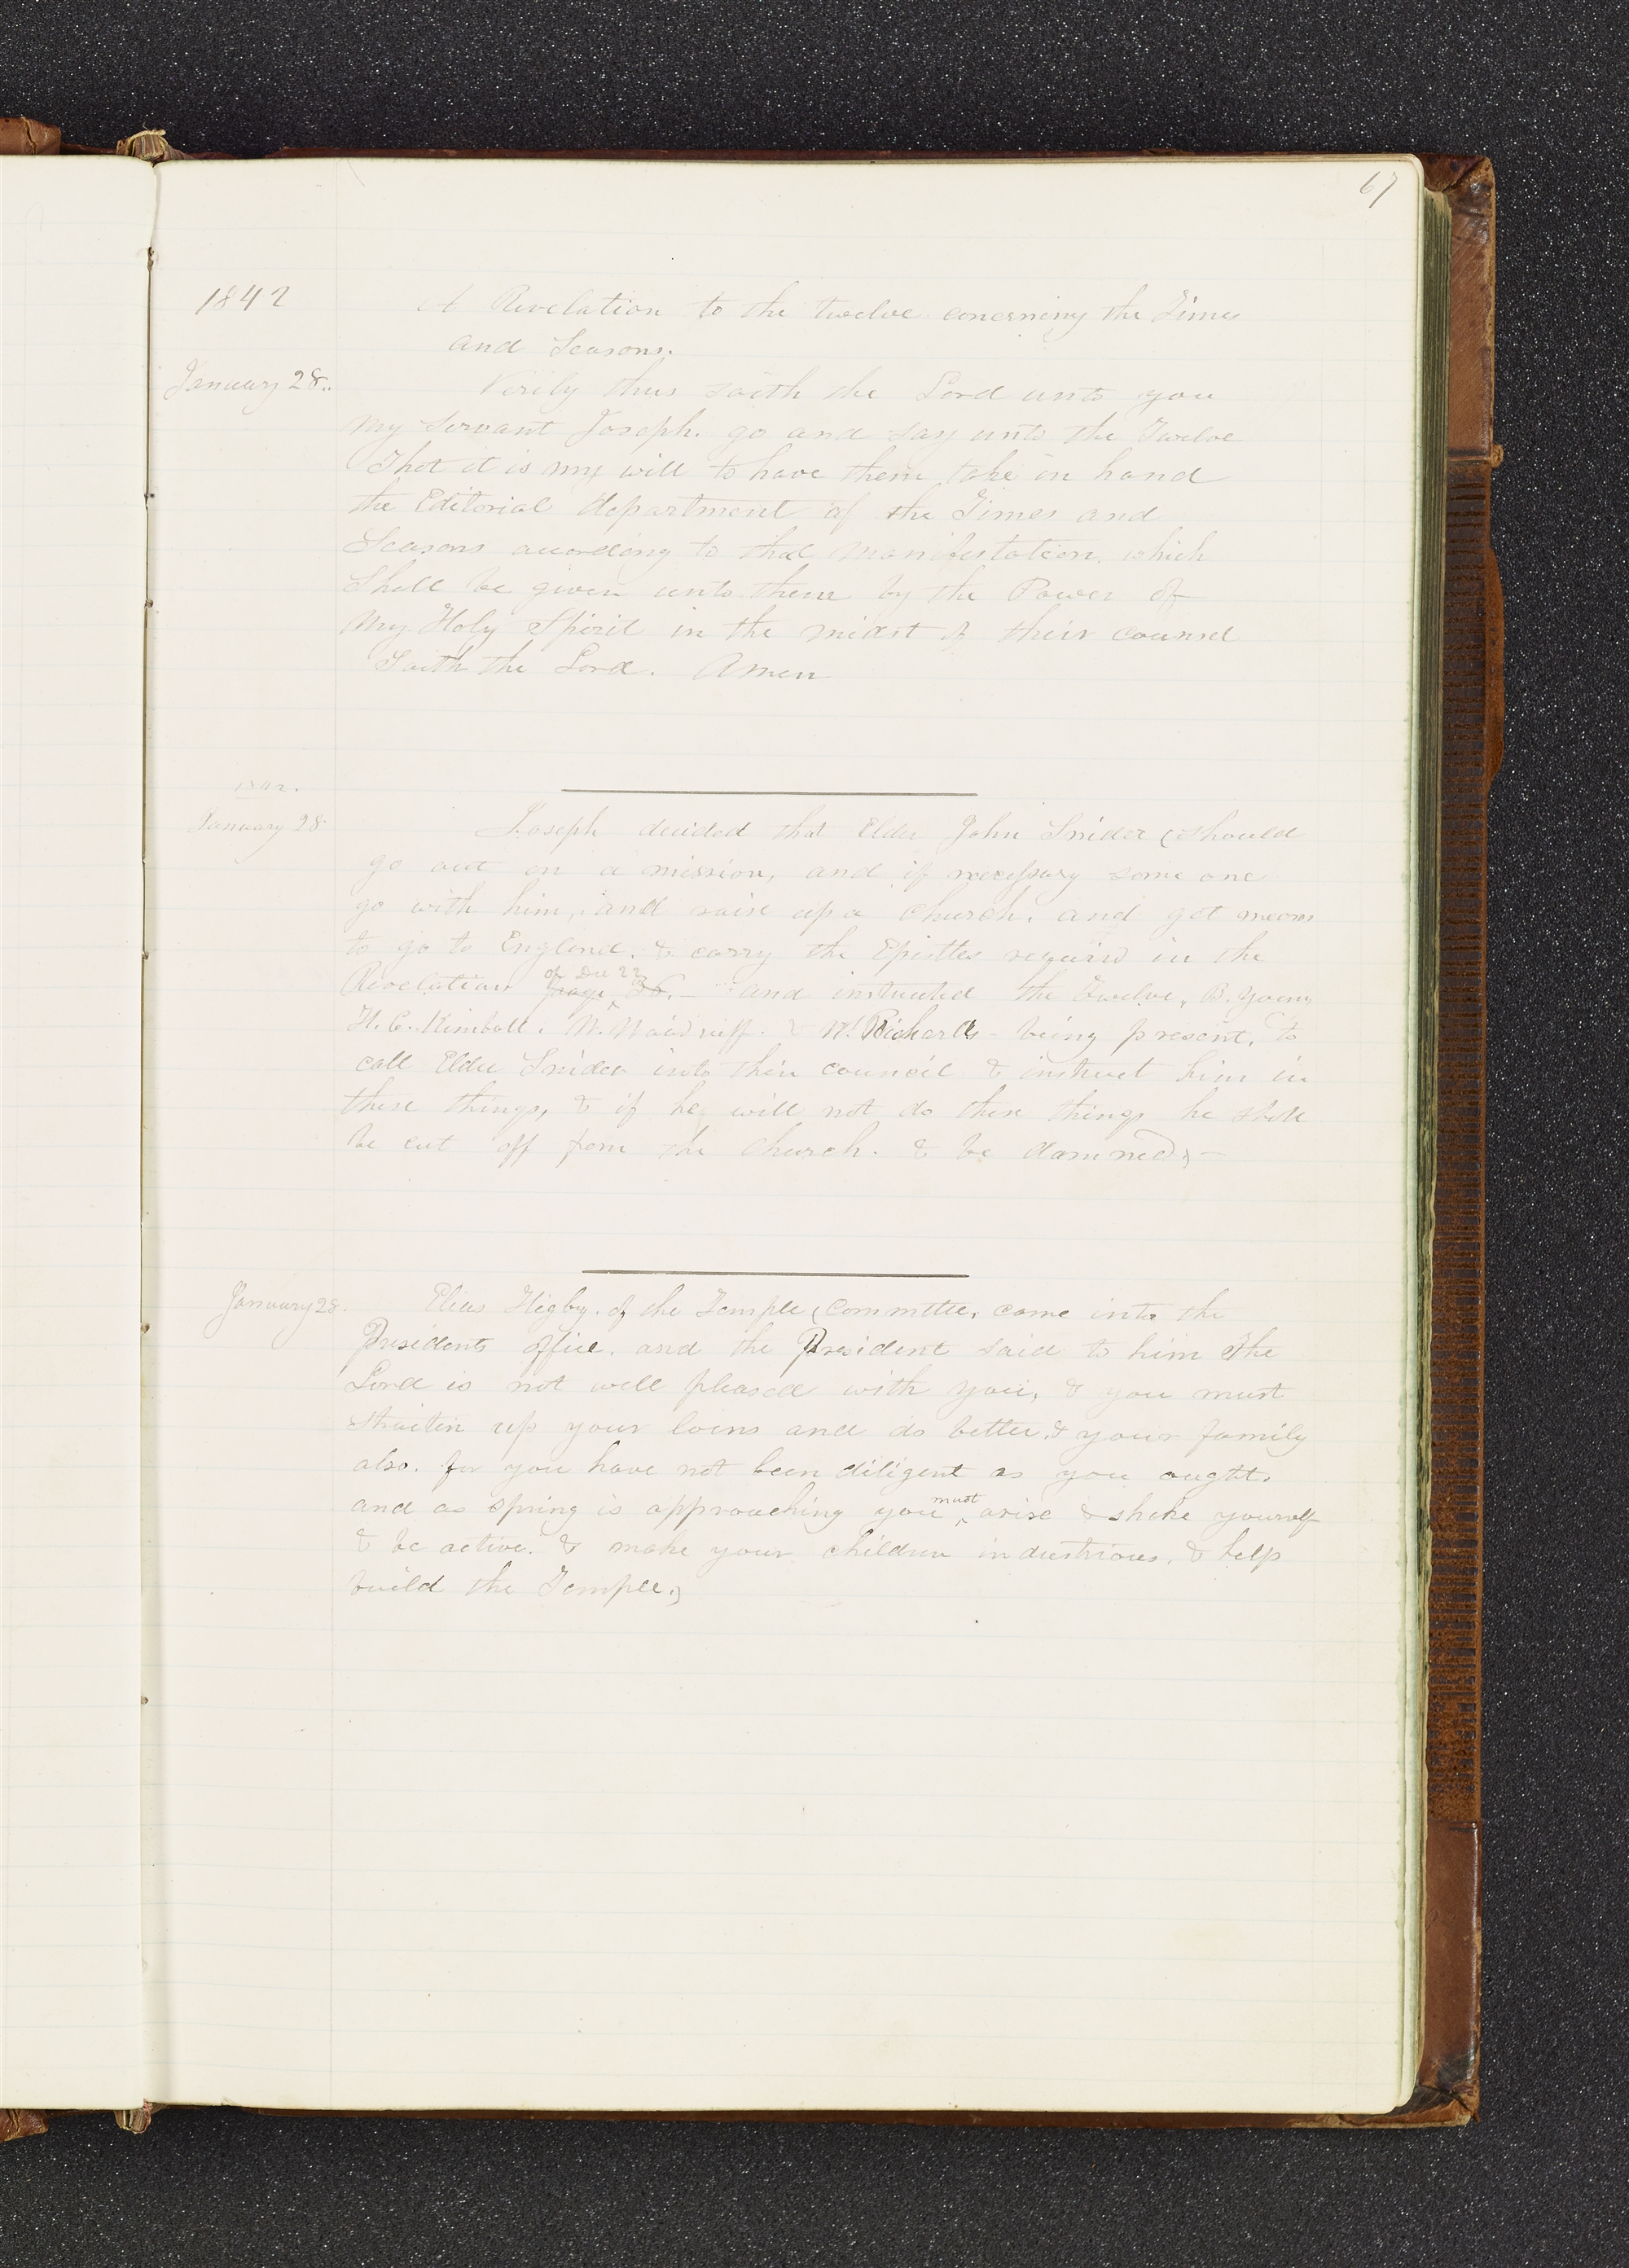 67
1842
A Revelation to the twelve concerning the Times
and Seasons.
January 28..
Verily thus saith the Lord unto you
my servant Joseph. go and say unto the Twelve
That it is my will to have them take in hand
the Editorial department of the Times and
Seasons according to that manifestation. which
Shall be given unto them by the Power of
My Holy Spirit in the midst of their counsel
Saith the Lord. Amen
1842.
January 28
Joseph decided that Elder John Snider (should
go out on a mission, and if necessary some one
go with him, and raise up a church. and get means
to go to England. & carry the Epistles required in the
of Dec 22
Revelation page 36. — and instructed the Twelve, B. Young
H. C. Kimball. W. Woodruff. & W. Richards - being present, to
call Elder Snider into their council & instruct him in
these things, & if he will not do these things he shall
be cut off from the church. & be damned) —
January 28.
Elias Higby. of the Temple (committee, came into the
Presidents office. and the President said to him The
Lord is not well pleased with you, & you must
straiten up your loins and do better, & your family
also. for you have not been diligent as you ought.
must
and as spring is approaching you ^ arise & shake yourself
& be active. & make your children industrious, & help
build the Temple.)